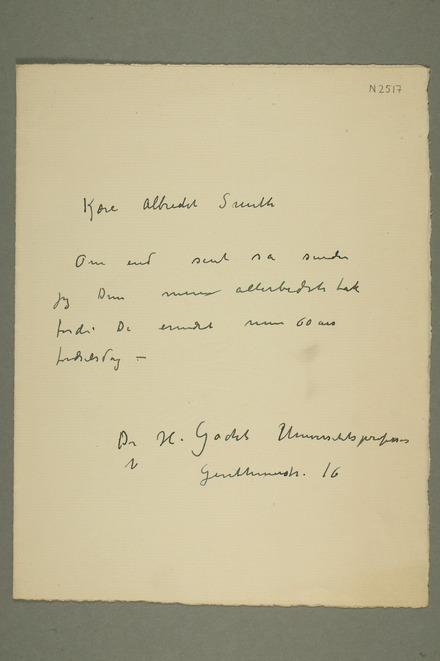 N2517
Kære Albrecht Smith
Om end sent så sender
jeg Dem min allerbedste tak
fordi De erindret min 60 års
fødselsdag –
Dr H. Universitätsprofessor
16